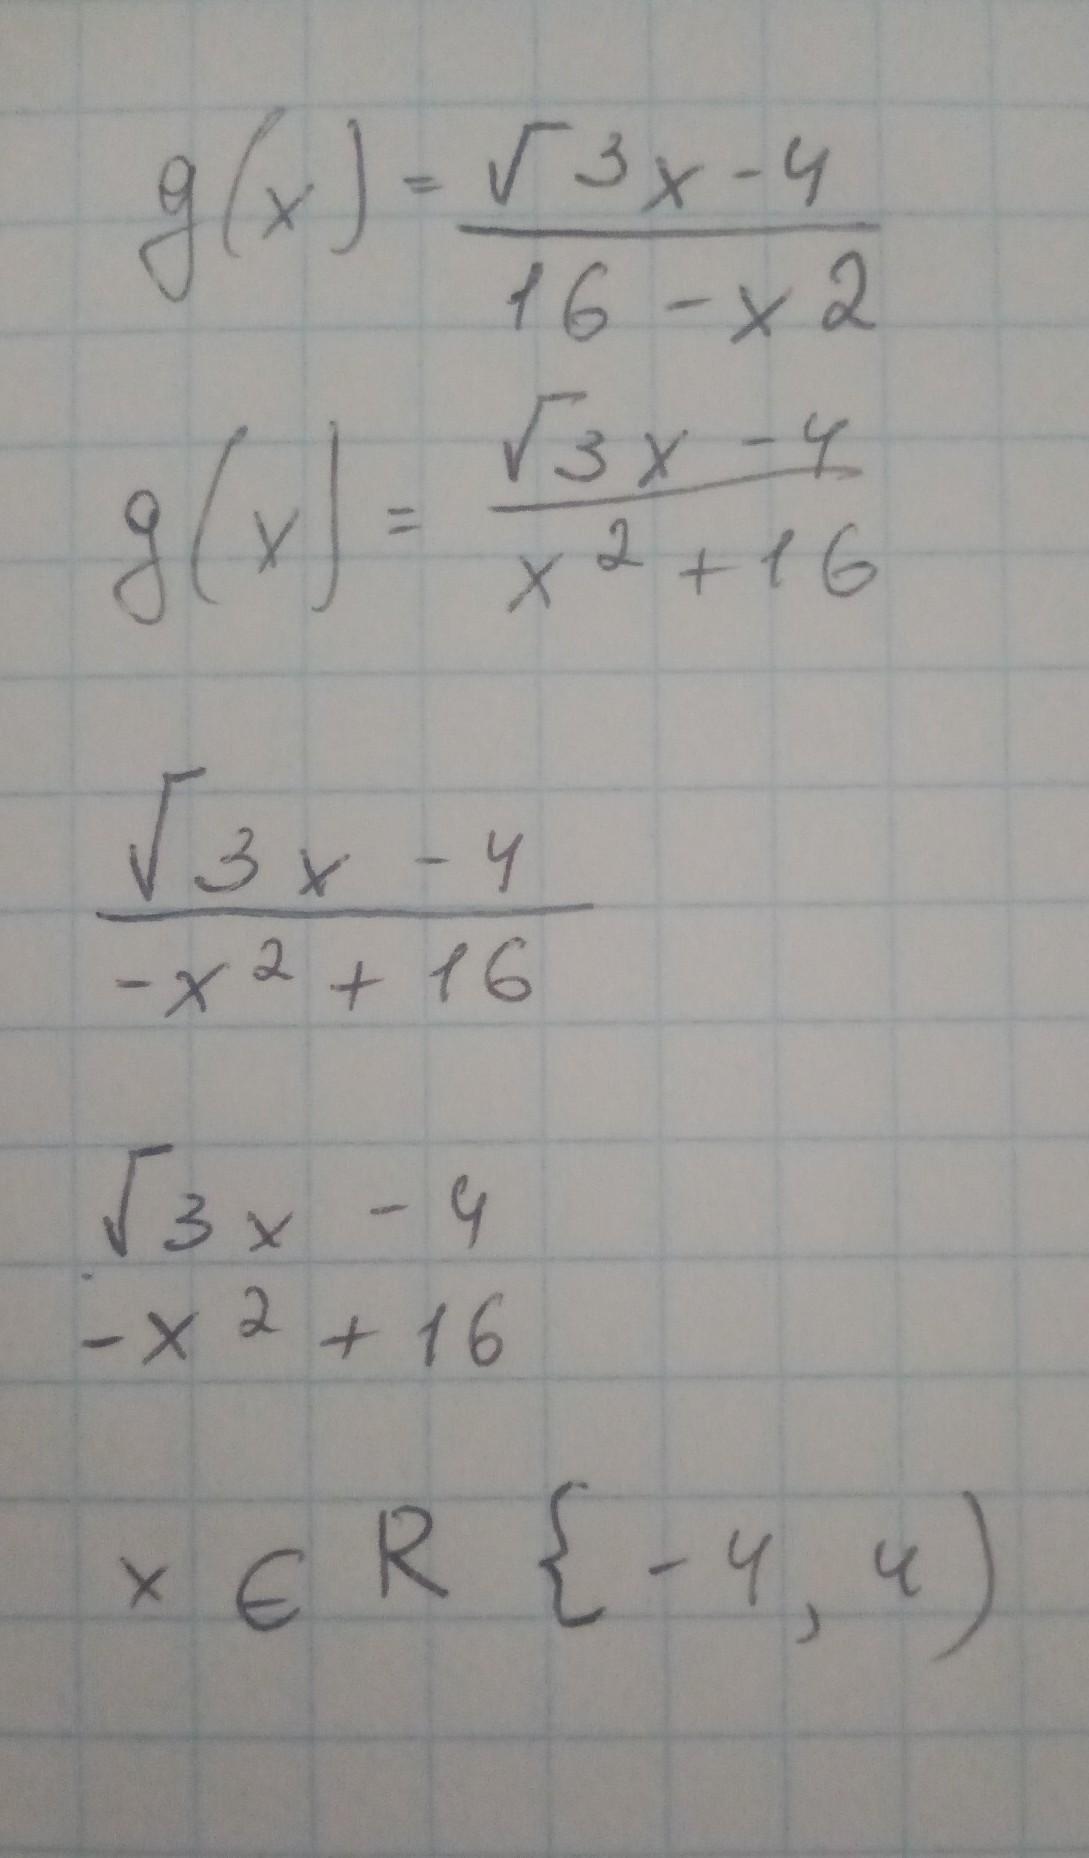 g(x) = √3x - 4
16 - x2
g(x) = √3x - 4
x² + 16
√3x - 4
-x² + 16
√3x - 4
-x² + 16
x ∈ R {-4, 4)